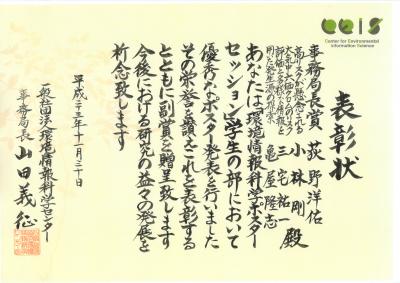 ceis
Center for Environmental
Information Science
表彰状
事務局長賞 荻野洋佑
高リスクが懸念される
小林剛
三宅祐一
亀屋隆志
殿
あなたは環境情報科学ポスター
セッション学生の部において
優秀なポスター発表を行いました
その栄誉を讃えこれを表彰する
とともに副賞を贈呈致します
今後における研究の益々の発展を
祈念致します
平成二十三年十一月三十日
一般社団法人環境情報科学センター
事務局長 山田義征